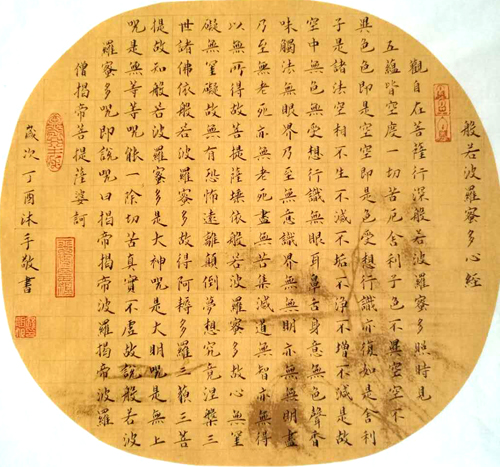 般若波羅蜜多心經
觀自在菩薩行深般若波羅蜜多照時見
五蘊皆空度一切苦厄舍利子色不異空空不
異色色即是空空即是色受想行識亦復如是舍利
子是諸法空相不生不滅不垢不淨不增不減是故
空中無色無受想行識無眼耳鼻舌身意無色聲香
味觸法無眼界乃至無意識界無無明亦無無明盡
乃至無老死亦無老死盡無苦集滅道無智亦無得
以無所得故菩提薩埵依般若波羅蜜多故心無罣
礙無罣礙故無有恐怖遠離顛倒夢想究竟涅槃三
世諸佛依般若波羅蜜多故得阿耨多羅三藐三菩
提故知般若波羅蜜多是大神呪是大明呪是無上
呪是無等等呪能一除切苦真實不虛故說般若波
羅蜜多呪即說呪曰揭帝揭帝波羅揭帝波羅
僧揭帝菩提薩婆訶
歲次丁酉沐手敬書